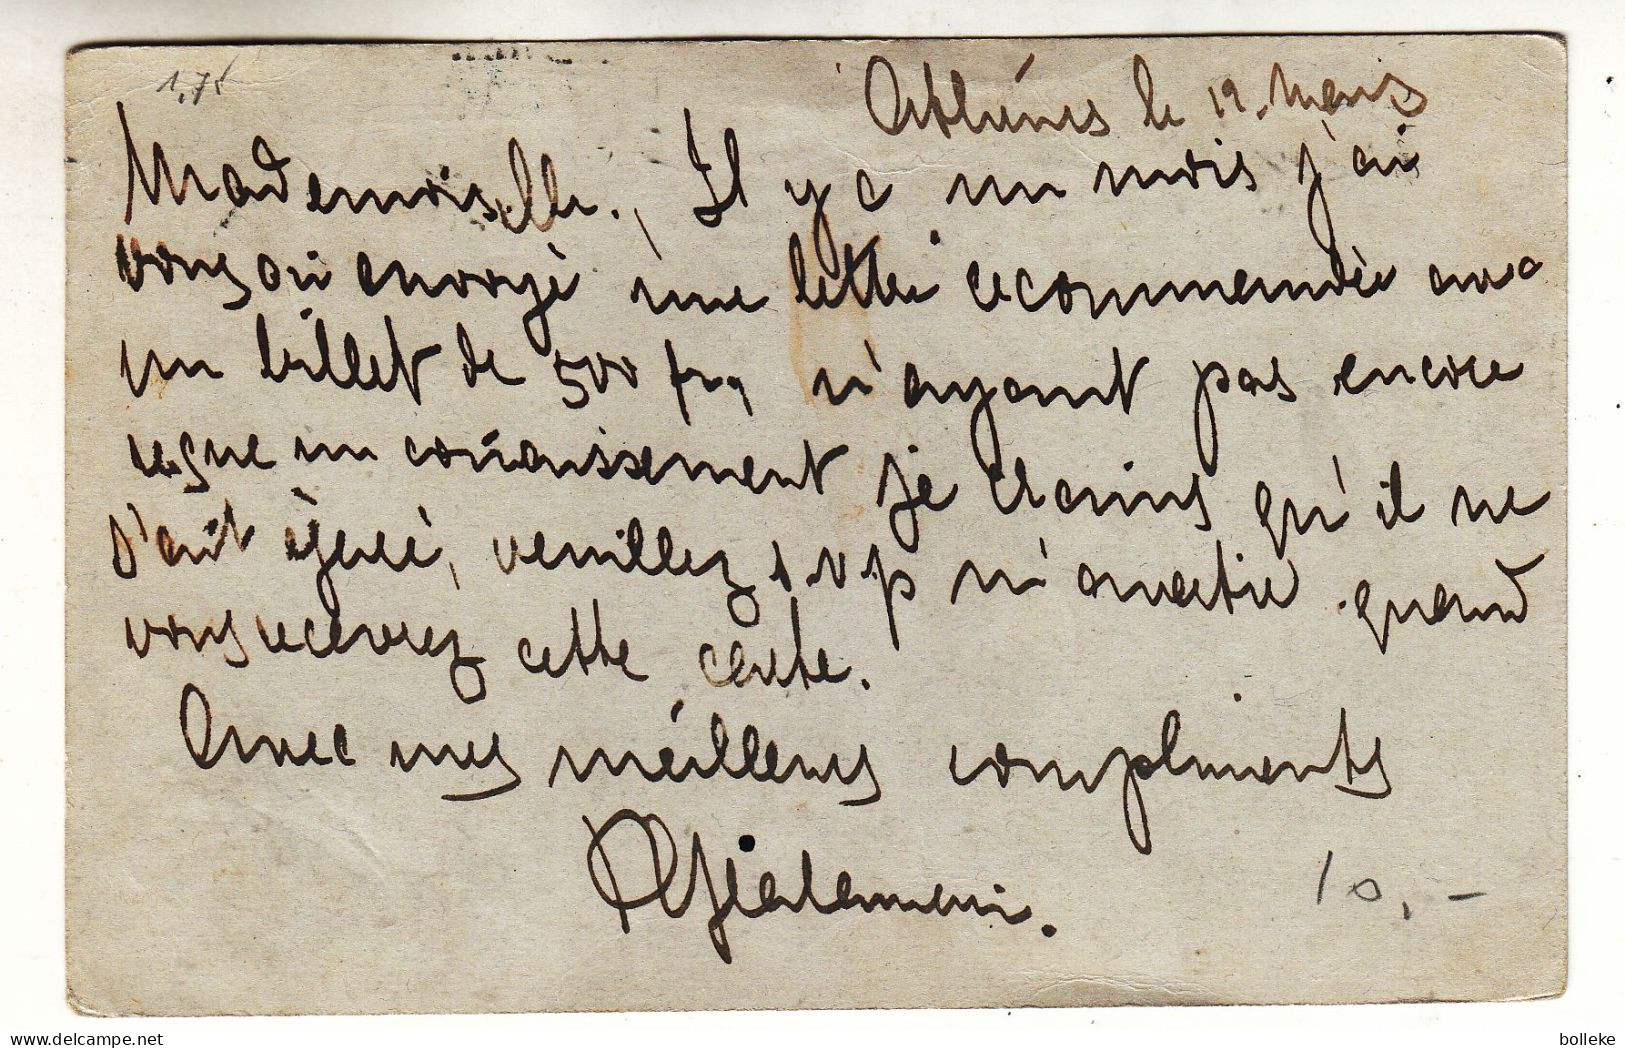 1,75
Athénes le 19. Mars
Mademoiselle., Il y a un mois j'ai
vous ai envoyé une lettre recommandée avec
un billet de 500 frs, n'ayant pas encore
reçue un connaissement je crains qu'il ne
s'ait égaré, veuillez s.v.p m'avertir quand
vous recevrez cette carte.
Avec mes meilleurs compliments
10,-
bolleke